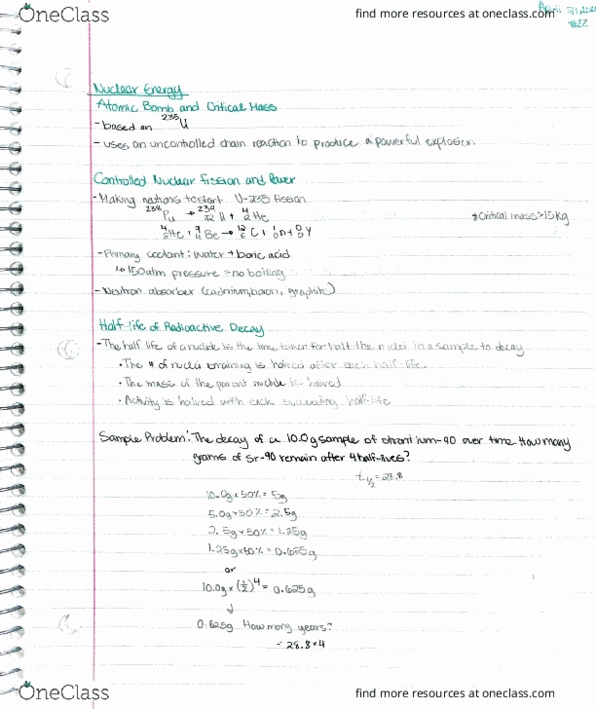 OneClass
find more resources at oneclass.com
#22
Nuclear Energy
Atomic Bomb and Critical Mass
- based on ²³⁵U
- uses an uncontrolled chain reaction to produce a powerful explosion
Controlled Nuclear Fission and Power
- Making neutrons to start U-235 fission
Pu → U + ⁴₂He
*Critical mass > 15kg
⁴₂He + ⁹₄Be → ¹²₆C + ¹₀n + ⁰₀γ
- Primary coolant: water + boric acid
↳ 150 atm pressure = no boiling
- Neutron absorber (cadmium, boron, graphite)
Half-life of Radioactive Decay
- The half life of a nuclide is the time taken for half the nuclei in a sample to decay
• The # of nuclei remaining is halved after each half-life
• The mass of the parent nuclide is halved
• Activity is halved with each succeeding half-life
Sample Problem: The decay of a 10.0g sample of strontium-90 over time. How many
grams of Sr-90 remain after 4 half-lives?
t½ = 28.8
10.0g x 50% = 5g
5.0g x 50% = 2.5g
2.5g x 50% = 1.25g
1.25g x 50% = 0.625g
or
10.0g x (½)⁴ = 0.625g
↓
0.625g How many years?
= 28.8 x 4
OneClass
find more resources at oneclass.com